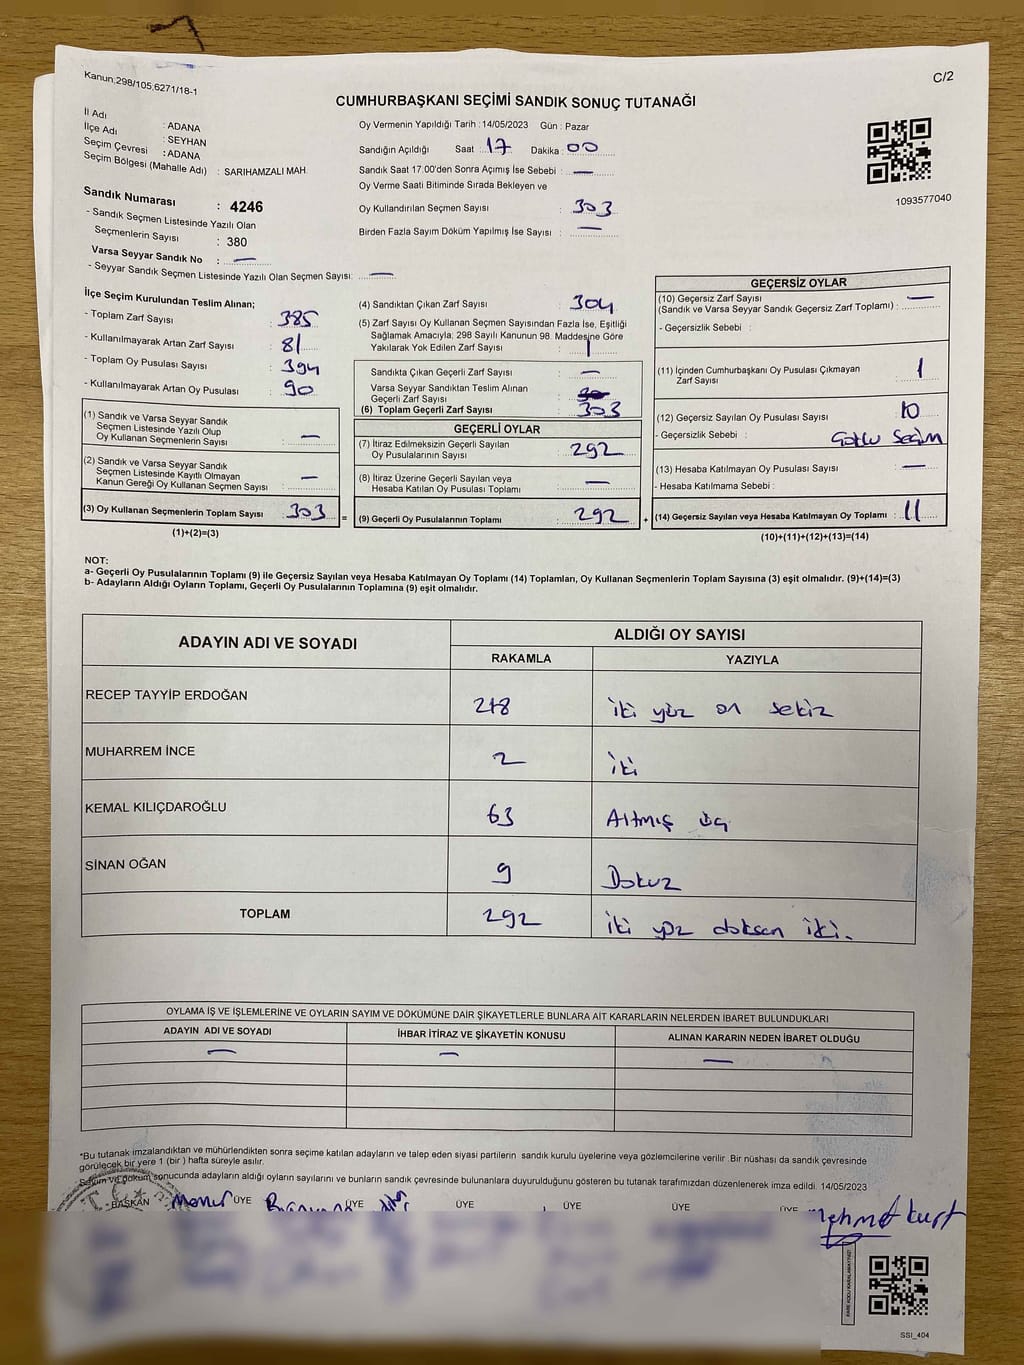 Kanun;298/105,6271/18-1
C/2
CUMHURBAŞKANI SEÇİMİ SANDIK SONUÇ TUTANAĞI
İl Adı : ADANA
İlçe Adı : SEYHAN
Seçim Çevresi : ADANA
Seçim Bölgesi (Mahalle Adı) : SARIHAMZALI MAH.
Sandık Numarası : 4246
- Sandık Seçmen Listesinde Yazılı Olan
Seçmenlerin Sayısı : 380
Varsa Seyyar Sandık No : —
- Seyyar Sandık Seçmen Listesinde Yazılı Olan Seçmen Sayısı: —
Oy Vermenin Yapıldığı Tarih : 14/05/2023 Gün : Pazar
Sandığın Açıldığı Saat : 17 Dakika : 00
Sandık Saat 17:00'den Sonra Açımış İse Sebebi : —
Oy Verme Saati Bitiminde Sırada Bekleyen ve
Oy Kullandırılan Seçmen Sayısı : 303
Birden Fazla Sayım Döküm Yapılmış İse Sayısı : —
1093577040
İlçe Seçim Kurulundan Teslim Alınan;
- Toplam Zarf Sayısı : 385
- Kullanılmayarak Artan Zarf Sayısı : 81
- Toplam Oy Pusulası Sayısı : 394
- Kullanılmayarak Artan Oy Pusulası : 90
(1) Sandık ve Varsa Seyyar Sandık
Seçmen Listesinde Yazılı Olup
Oy Kullanan Seçmenlerin Sayısı : —
(2) Sandık ve Varsa Seyyar Sandık
Seçmen Listesinde Kayıtlı Olmayan
Kanun Gereği Oy Kullanan Seçmen Sayısı : —
(3) Oy Kullanan Seçmenlerin Toplam Sayısı : 303 =
(1)+(2)=(3)
(4) Sandıktan Çıkan Zarf Sayısı : 304
(5) Zarf Sayısı Oy Kullanan Seçmen Sayısından Fazla İse, Eşitliği
Sağlamak Amacıyla; 298 Sayılı Kanunun 98. Maddesine Göre
Yakılarak Yok Edilen Zarf Sayısı : 1
Sandıkta Çıkan Geçerli Zarf Sayısı : —
Varsa Seyyar Sandıktan Teslim Alınan
Geçerli Zarf Sayısı :
(6) Toplam Geçerli Zarf Sayısı : 303
GEÇERLİ OYLAR
(7) İtiraz Edilmeksizin Geçerli Sayılan
Oy Pusulalarının Sayısı : 292
(8) İtiraz Üzerine Geçerli Sayılan veya
Hesaba Katılan Oy Pusulası Toplamı : —
(9) Geçerli Oy Pusulalarının Toplamı : 292 +
GEÇERSİZ OYLAR
(10) Geçersiz Zarf Sayısı : —
(Sandık ve Varsa Seyyar Sandık Geçersiz Zarf Toplamı)
- Geçersizlik Sebebi :
(11) İçinden Cumhurbaşkanı Oy Pusulası Çıkmayan
Zarf Sayısı : 1
(12) Geçersiz Sayılan Oy Pusulası Sayısı : 10
- Geçersizlik Sebebi : Çoklu Seçim
(13) Hesaba Katılmayan Oy Pusulası Sayısı : —
- Hesaba Katılmama Sebebi :
(14) Geçersiz Sayılan veya Hesaba Katılmayan Oy Toplamı : 11
(10)+(11)+(12)+(13)=(14)
NOT:
a- Geçerli Oy Pusulalarının Toplamı (9) ile Geçersiz Sayılan veya Hesaba Katılmayan Oy Toplamı (14) Toplamları, Oy Kullanan Seçmenlerin Toplam Sayısına (3) eşit olmalıdır. (9)+(14)=(3)
b- Adayların Aldığı Oyların Toplamı, Geçerli Oy Pusulalarının Toplamına (9) eşit olmalıdır.
ADAYIN ADI VE SOYADI
ALDIĞI OY SAYISI
RAKAMLA YAZIYLA
RECEP TAYYİP ERDOĞAN 218 iki yüz on sekiz
MUHARREM İNCE 2 iki
KEMAL KILIÇDAROĞLU 63 Altmış üç
SİNAN OĞAN 9 Dokuz
TOPLAM 292 iki yüz doksan iki.
OYLAMA İŞ VE İŞLEMLERİNE VE OYLARIN SAYIM VE DÖKÜMÜNE DAİR ŞİKAYETLERLE BUNLARA AİT KARARLARIN NELERDEN İBARET BULUNDUKLARI
ADAYIN ADI VE SOYADI İHBAR İTİRAZ VE ŞİKAYETİN KONUSU ALINAN KARARIN NEDEN İBARET OLDUĞU
— — —
*Bu tutanak imzalandıktan ve mühürlendikten sonra seçime katılan adayların ve talep eden siyasi partilerin sandık kurulu üyelerine veya gözlemcilerine verilir. Bir nüshası da sandık çevresinde
görülecek bir yere 1 (bir ) hafta süreyle asılır.
Sayım ve döküm sonucunda adayların aldığı oyların sayılarını ve bunların sandık çevresinde bulunanlara duyurulduğunu gösteren bu tutanak tarafımızdan düzenlenerek imza edildi. 14/05/2023
BAŞKAN ÜYE ÜYE ÜYE ÜYE ÜYE ÜYE
Mehmet Kurt
SSI_404